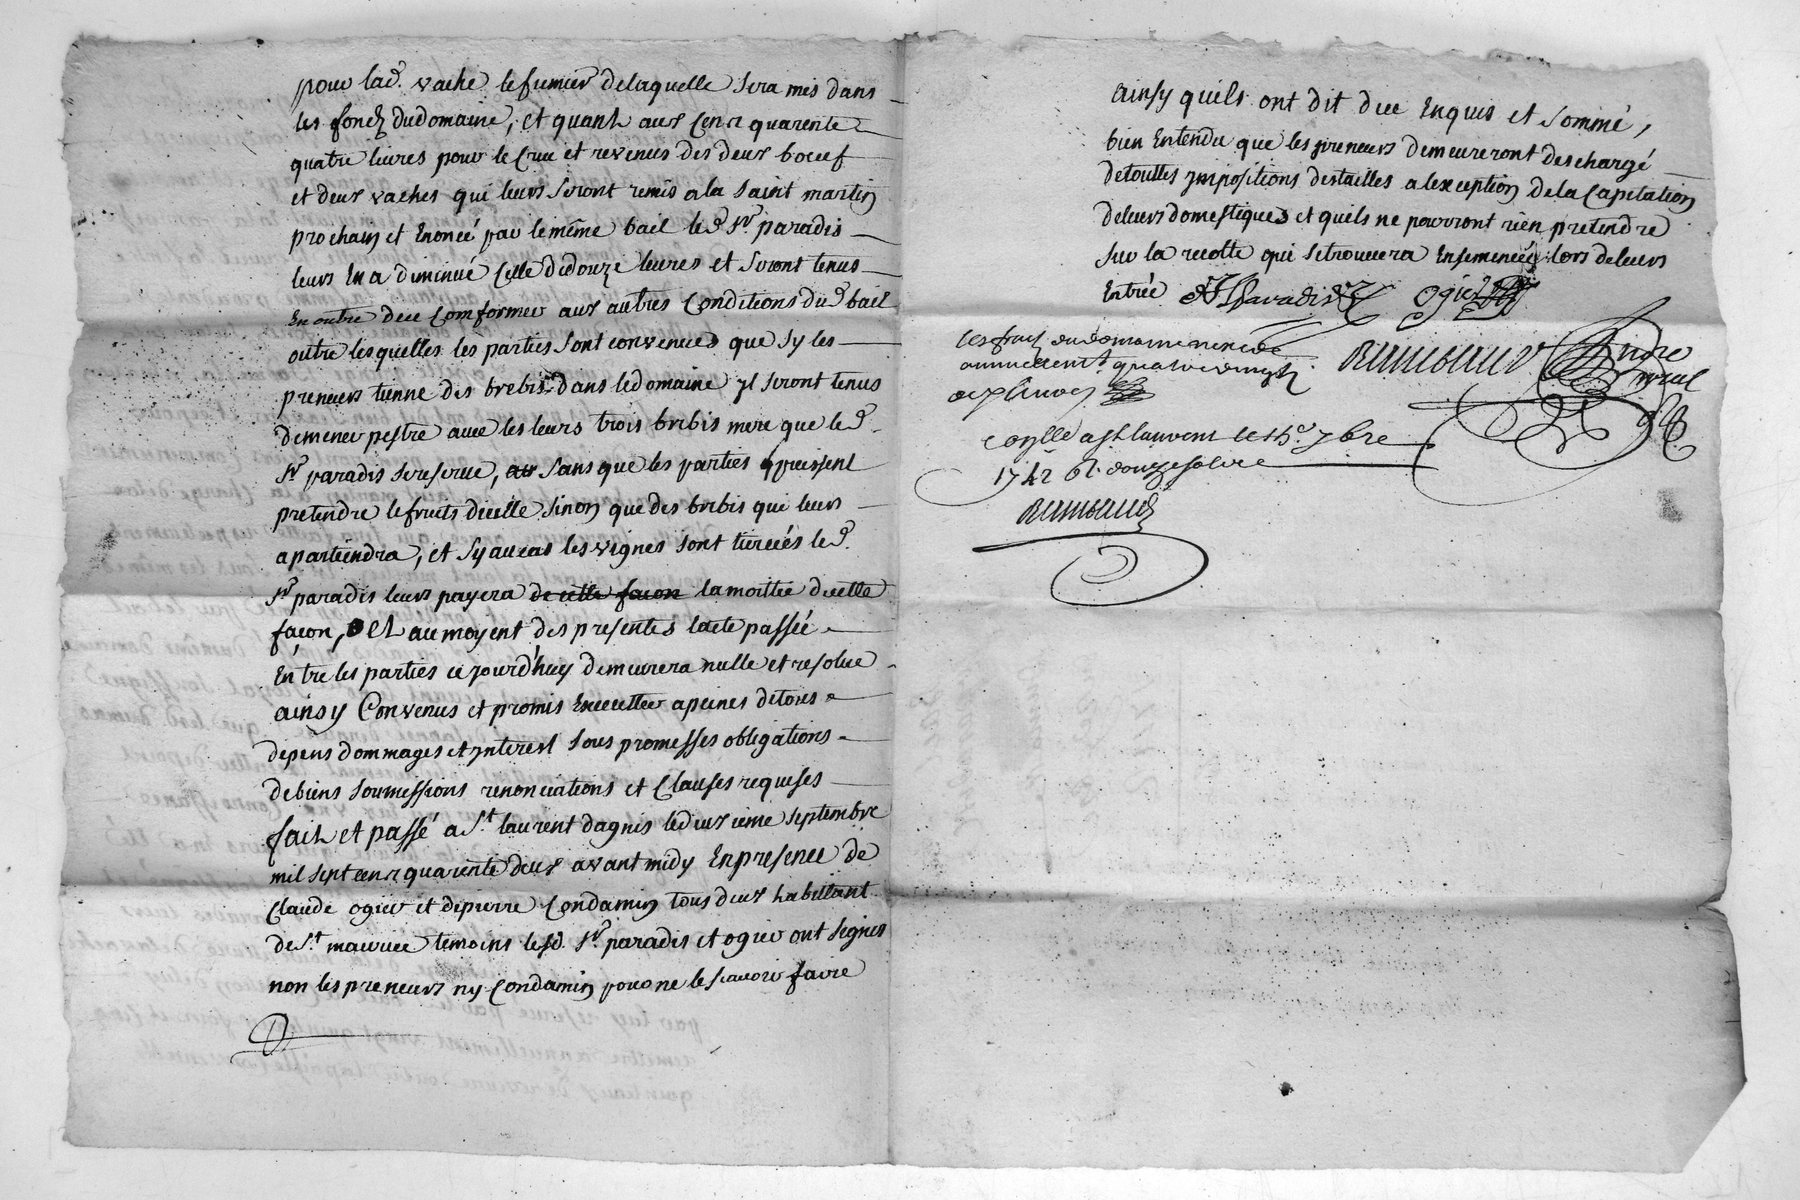 pour lad. vache le fumier delaquelle sera mis dans
les fondz dudomaine, et quant aux cent quarente
quatre livres pour le Crue et revenus des deux boeuf
et deux vaches qui leurs seront remis ala saint martin
prochain et Enoncé par lemême bail led. Sr. paradis
leurs En a diminué Celle de douze livres et seront tenus
En outre dece Comformer aux autres Conditions dud. bail
outre lesquelles les parties sont convenües que sy les
preneurs tienne des brebis dans ledomaine yl seront tenus
demener pestre avec les leurs trois brebis mere que led.
Sr. paradis sereserve, sans que les parties puissent
pretendre lefruits dicelle sinon que des brebis qui leurs
apartiendra, et sy aucas les vignes sont tierciés led.
Sr. paradis leurs payera de cette facon la moittie dicelle
facon, et aumoyent des presentes lacte passée
Entre les parties ce jourd'huy demeurera nulle et resolue
ainsy Convenus et promis Executter apeines detous
depens dommages et jnterest sous promesses obligations
debiens soumissions renonciations et Clauses requises
fait et passé a St. laurent dagnis ledeuxieme septembre
mil sept cent quarente deux avant midy En presence de
Claude ogier et depierre Condamin tous deux habittant
de St. maurice temoins lesd. Sr. paradis et ogier ont signes
non les preneurs ny Condamin pour ne le scavoir faire
ainsy quils ont dit due Enquis et sommé,
bien Entendu que les preneurs demeureront deschargé
detouttes jmpositions destailles alexception dela Capitation
deleurs domestiques et quils ne pourront rien pretendre
sur la recolte qui setrouvera Ensemencée lors deleurs
Entrée Paradis ogier
les fruis dudomaine
annuelement quatrevingts
Raimbaud
Conlle a St laurent le 7bre
1742 douze sols
Raimbaud